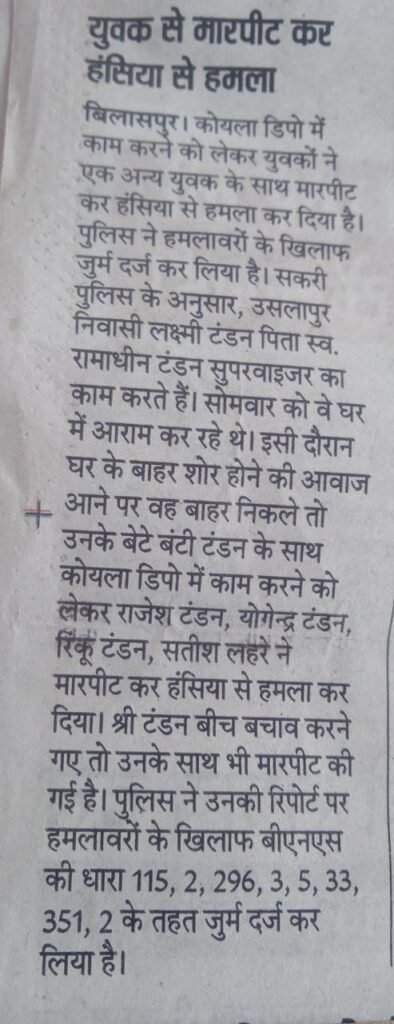 युवक से मारपीट कर
हंसिया से हमला
बिलासपुर। कोयला डिपो में
काम करने को लेकर युवकों ने
एक अन्य युवक के साथ मारपीट
कर हंसिया से हमला कर दिया है।
पुलिस ने हमलावरों के खिलाफ
जुर्म दर्ज कर लिया है। सकरी
पुलिस के अनुसार, उसलापुर
निवासी लक्ष्मी टंडन पिता स्व.
रामाधीन टंडन सुपरवाइजर का
काम करते हैं। सोमवार को वे घर
में आराम कर रहे थे। इसी दौरान
घर के बाहर शोर होने की आवाज
आने पर वह बाहर निकले तो
उनके बेटे बंटी टंडन के साथ
कोयला डिपो में काम करने को
लेकर राजेश टंडन, योगेन्द्र टंडन,
रिंकू टंडन, सतीश लहरे ने
मारपीट कर हंसिया से हमला कर
दिया। श्री टंडन बीच बचाव करने
गए तो उनके साथ भी मारपीट की
गई है। पुलिस ने उनकी रिपोर्ट पर
हमलावरों के खिलाफ बीएनएस
की धारा 115, 2, 296, 3, 5, 33,
351, 2 के तहत जुर्म दर्ज कर
लिया है।